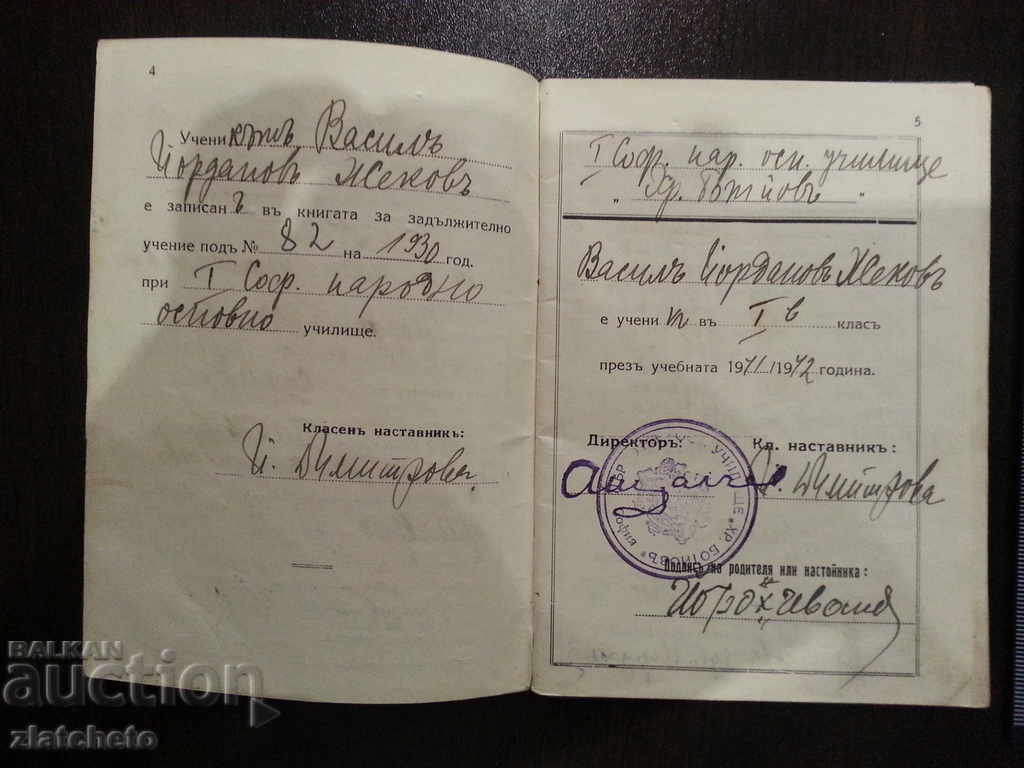 4
Ученикътъ Василъ
Йордановъ Жековъ
е записанъ въ книгата за задължително
учение подъ № 82 на 1930 год.
при I Соф. народно
основно училище.
Класенъ наставникъ:
Й. Димитрова
5
I Соф. нар. осн. училище
„ Хр. Ботйовъ “
Василъ Йордановъ Жековъ
е учени къ въ I в класъ
презъ учебната 1941/1942 година.
Директоръ: Кл. наставникъ:
Й. Димитрова
УЧИЛИЩЕ "ХР. БОТЙОВЪ"
Подписъ на родителя или настойника:
BALKAN
auction
zlatcheto